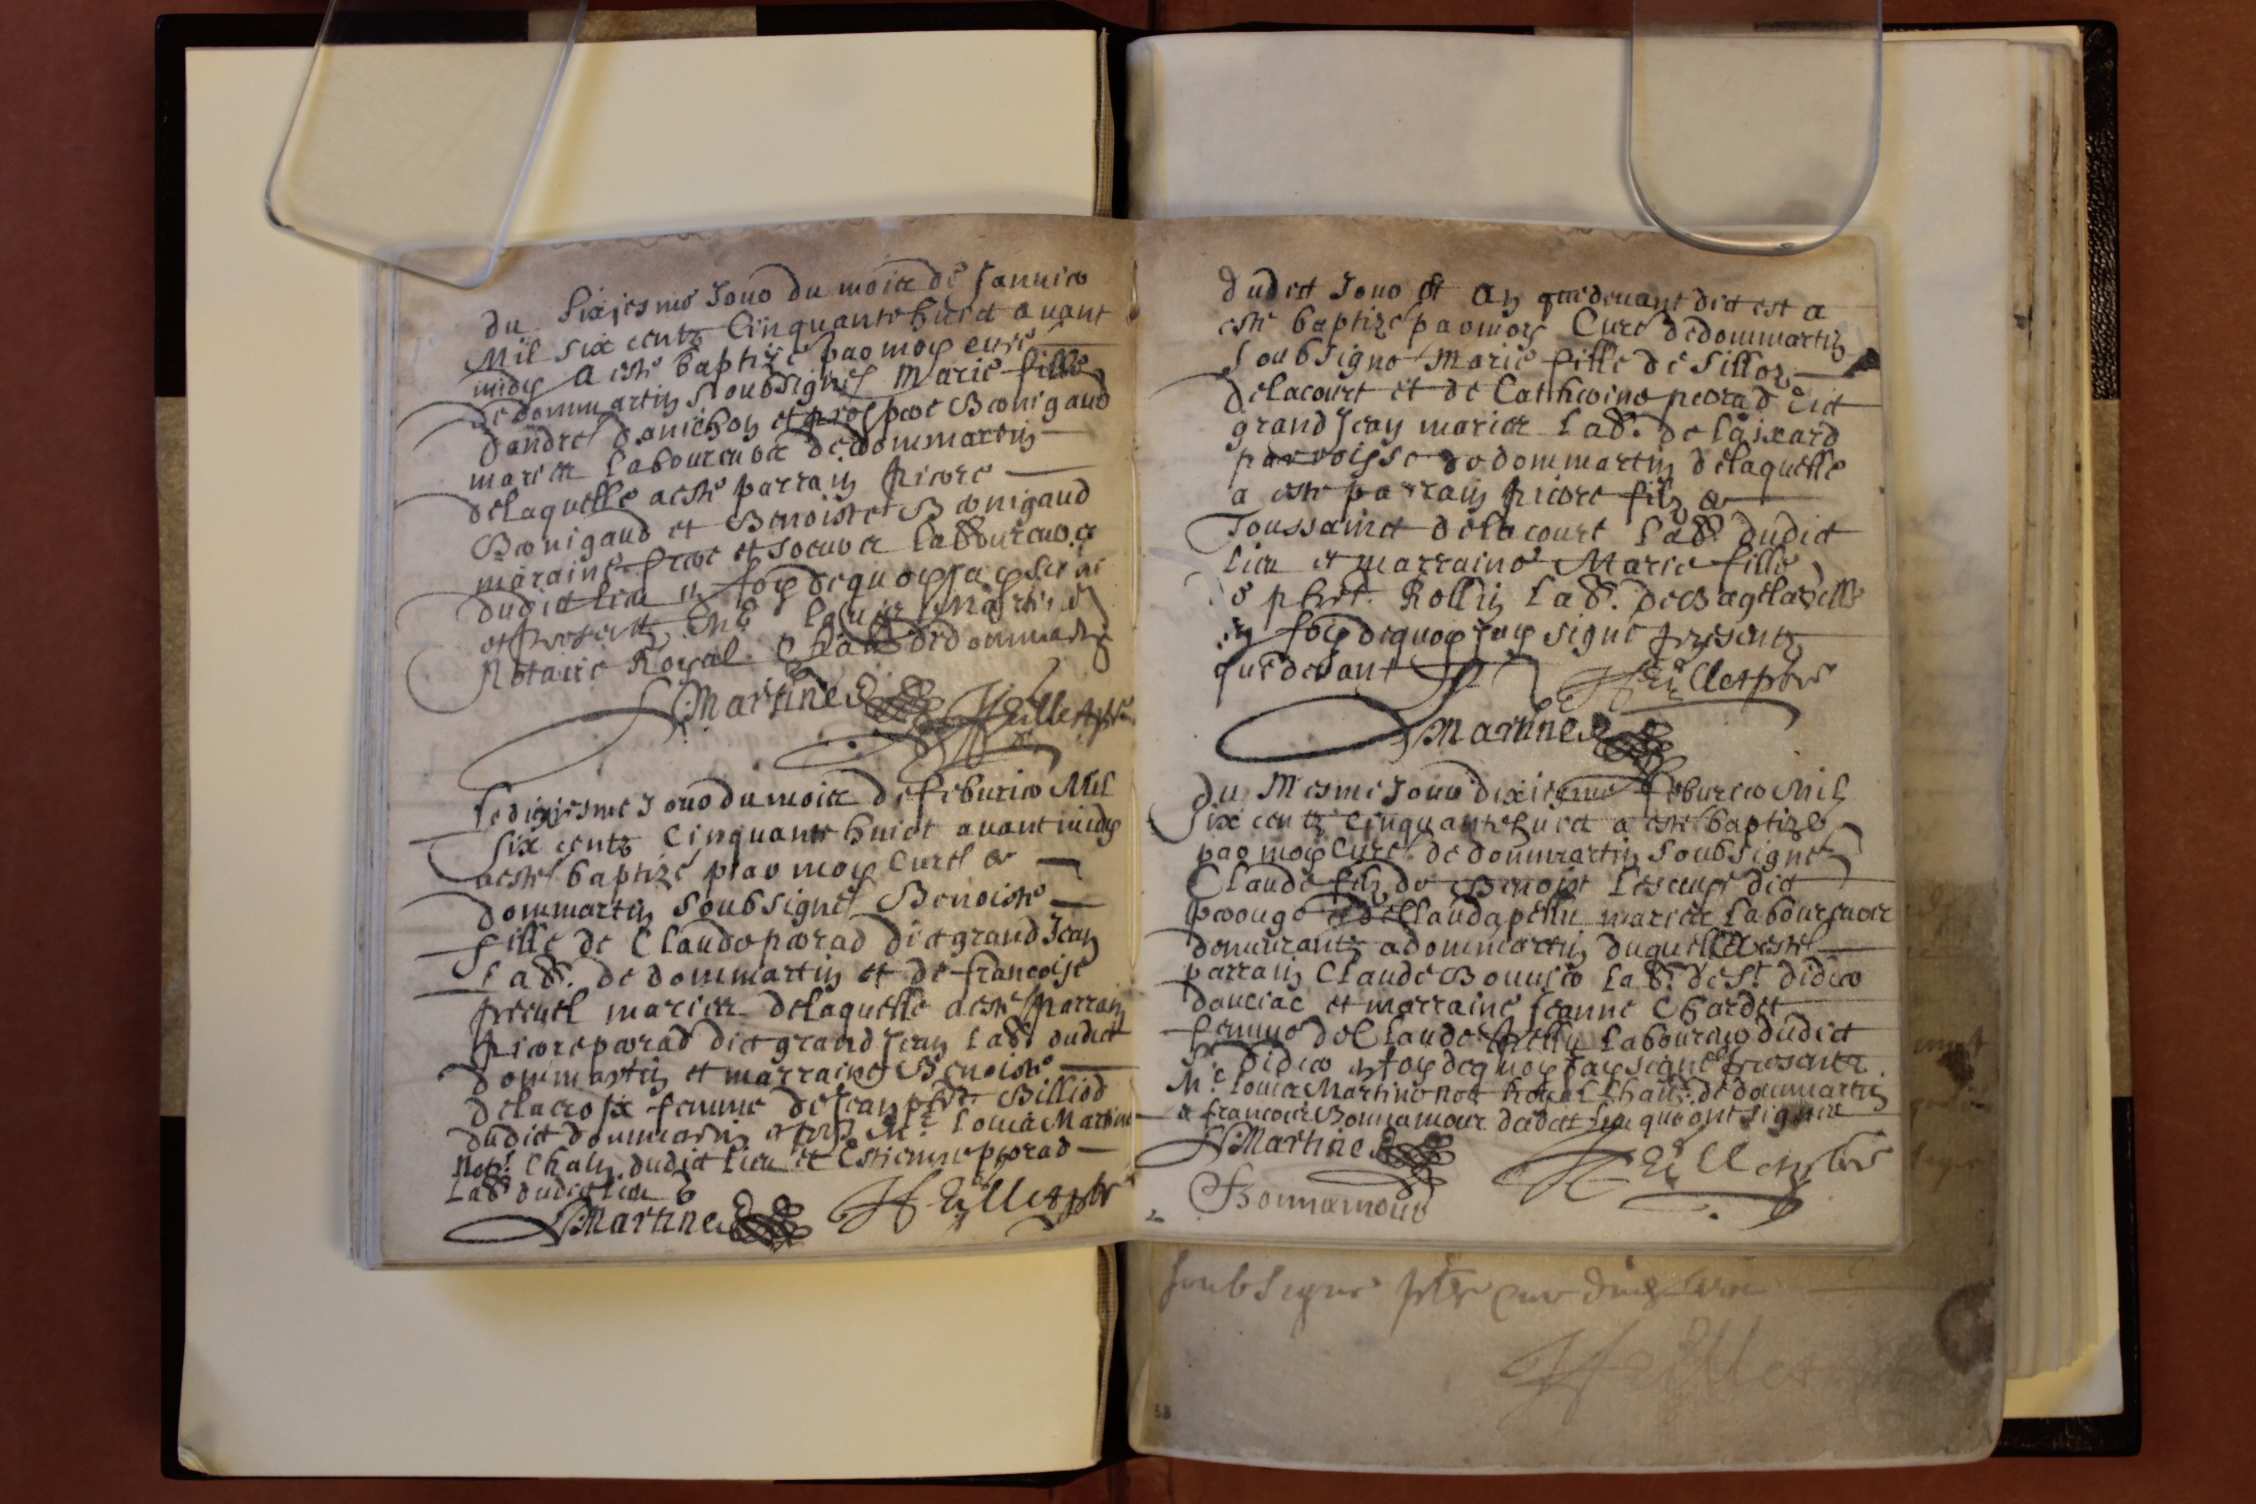 du sixiesme Jour du mois de Januier
Mil six centz Cinquante huict auant
midy A este baptizé par moy curé
de dommartin soubsigné Marie fille
dandré danichon et prospere Bonigaud
mariez laboureurs de dommartin
delaquelle a esté parrain pierre
Bonigaud et Benoiste Bonigaud
maraine frere et soeur laboureurs
dudict lieu en foy dequoy Jay signé
et presentz Me Louis Martine
Notaire Royal Chall de dommartin
Martine
Heillet pbre
Le dixiesme Jour du mois de feburier Mil
six centz Cinquante huict auant midy
a esté baptizé par moy Curé de
dommartin soubsigné Benoiste
fille de Claude perrad dict grand Jean
Lab. de dommartin et de francoise
preuel mariez delaquelle a esté parrain
pierre perrad dict grand Jean Lab. dudict
dommartin et marraine Benoiste
delacroix femme de Jean phbt. Billiod
dudict dommartin et Me Louis Martine
Not. Chall. dudict lieu et Estienne perrad
Lab dudict lieu
Martine
Heillet pbr
dudict Jour et an que deuant dict est a
esté baptizé par moy Curé de dommartin
soubsigné Marie fille de Fillon
delacourt et de Catherine perrad dict
grand Jean mariez Lab. de laixard
parroisse de dommartin delaquelle
a esté parrain pierre filz de
Toussainct delacourt Lab. dudict
lieu et marraine Marie fille
de phbt. Rollin Lab. de Bagelaville
en foy dequoy Jay signé presentz
que desant
Heillet pbre
Martine
du Mesme Jour dixiesme feburier Mil
six centz cinquante huict a esté baptizé
par moy Curé de dommartin soubsigné
Claude filz de Benoist Lescuyé dict
prouge et de Clauda pellu mariez laboureurs
demeurantz a dommartin duquel a esté
parrain Claude Bouuier Lab. de St didier
dauciac et marraine Jeanne Chardet
femme de Claude pellu laboureur dudict
St didier en foy dequoy Jay signé presentz
Me Louis Martine not Royal Chall. de dommartin
et francois Bonnamour dudict lieu qui ont signez
Martine
Heillet pbre
Bonnamour
soubsigné